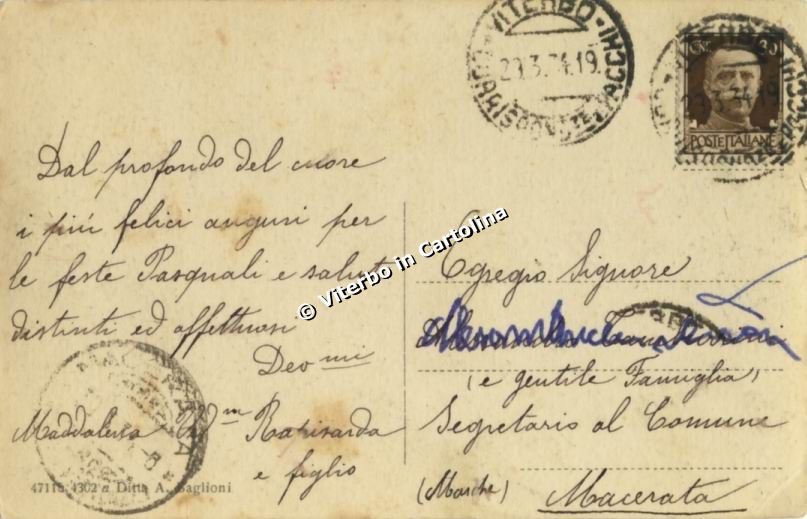 VITERBO
CORRISPONDENZE PACCHI
29.3.34.19
CENT. 30
POSTE ITALIANE
Dal profondo del cuore
i più felici auguri per
le feste Pasquali e saluti
distinti ed affettuosi
Devo mi
Maddalena
e figlio
47118,4302 a Ditta A. Baglioni
MACERATA
© Viterbo in Cartolina
Egregio Signore
(e gentile Famiglia)
Segretario al Comune
(Marche) Macerata